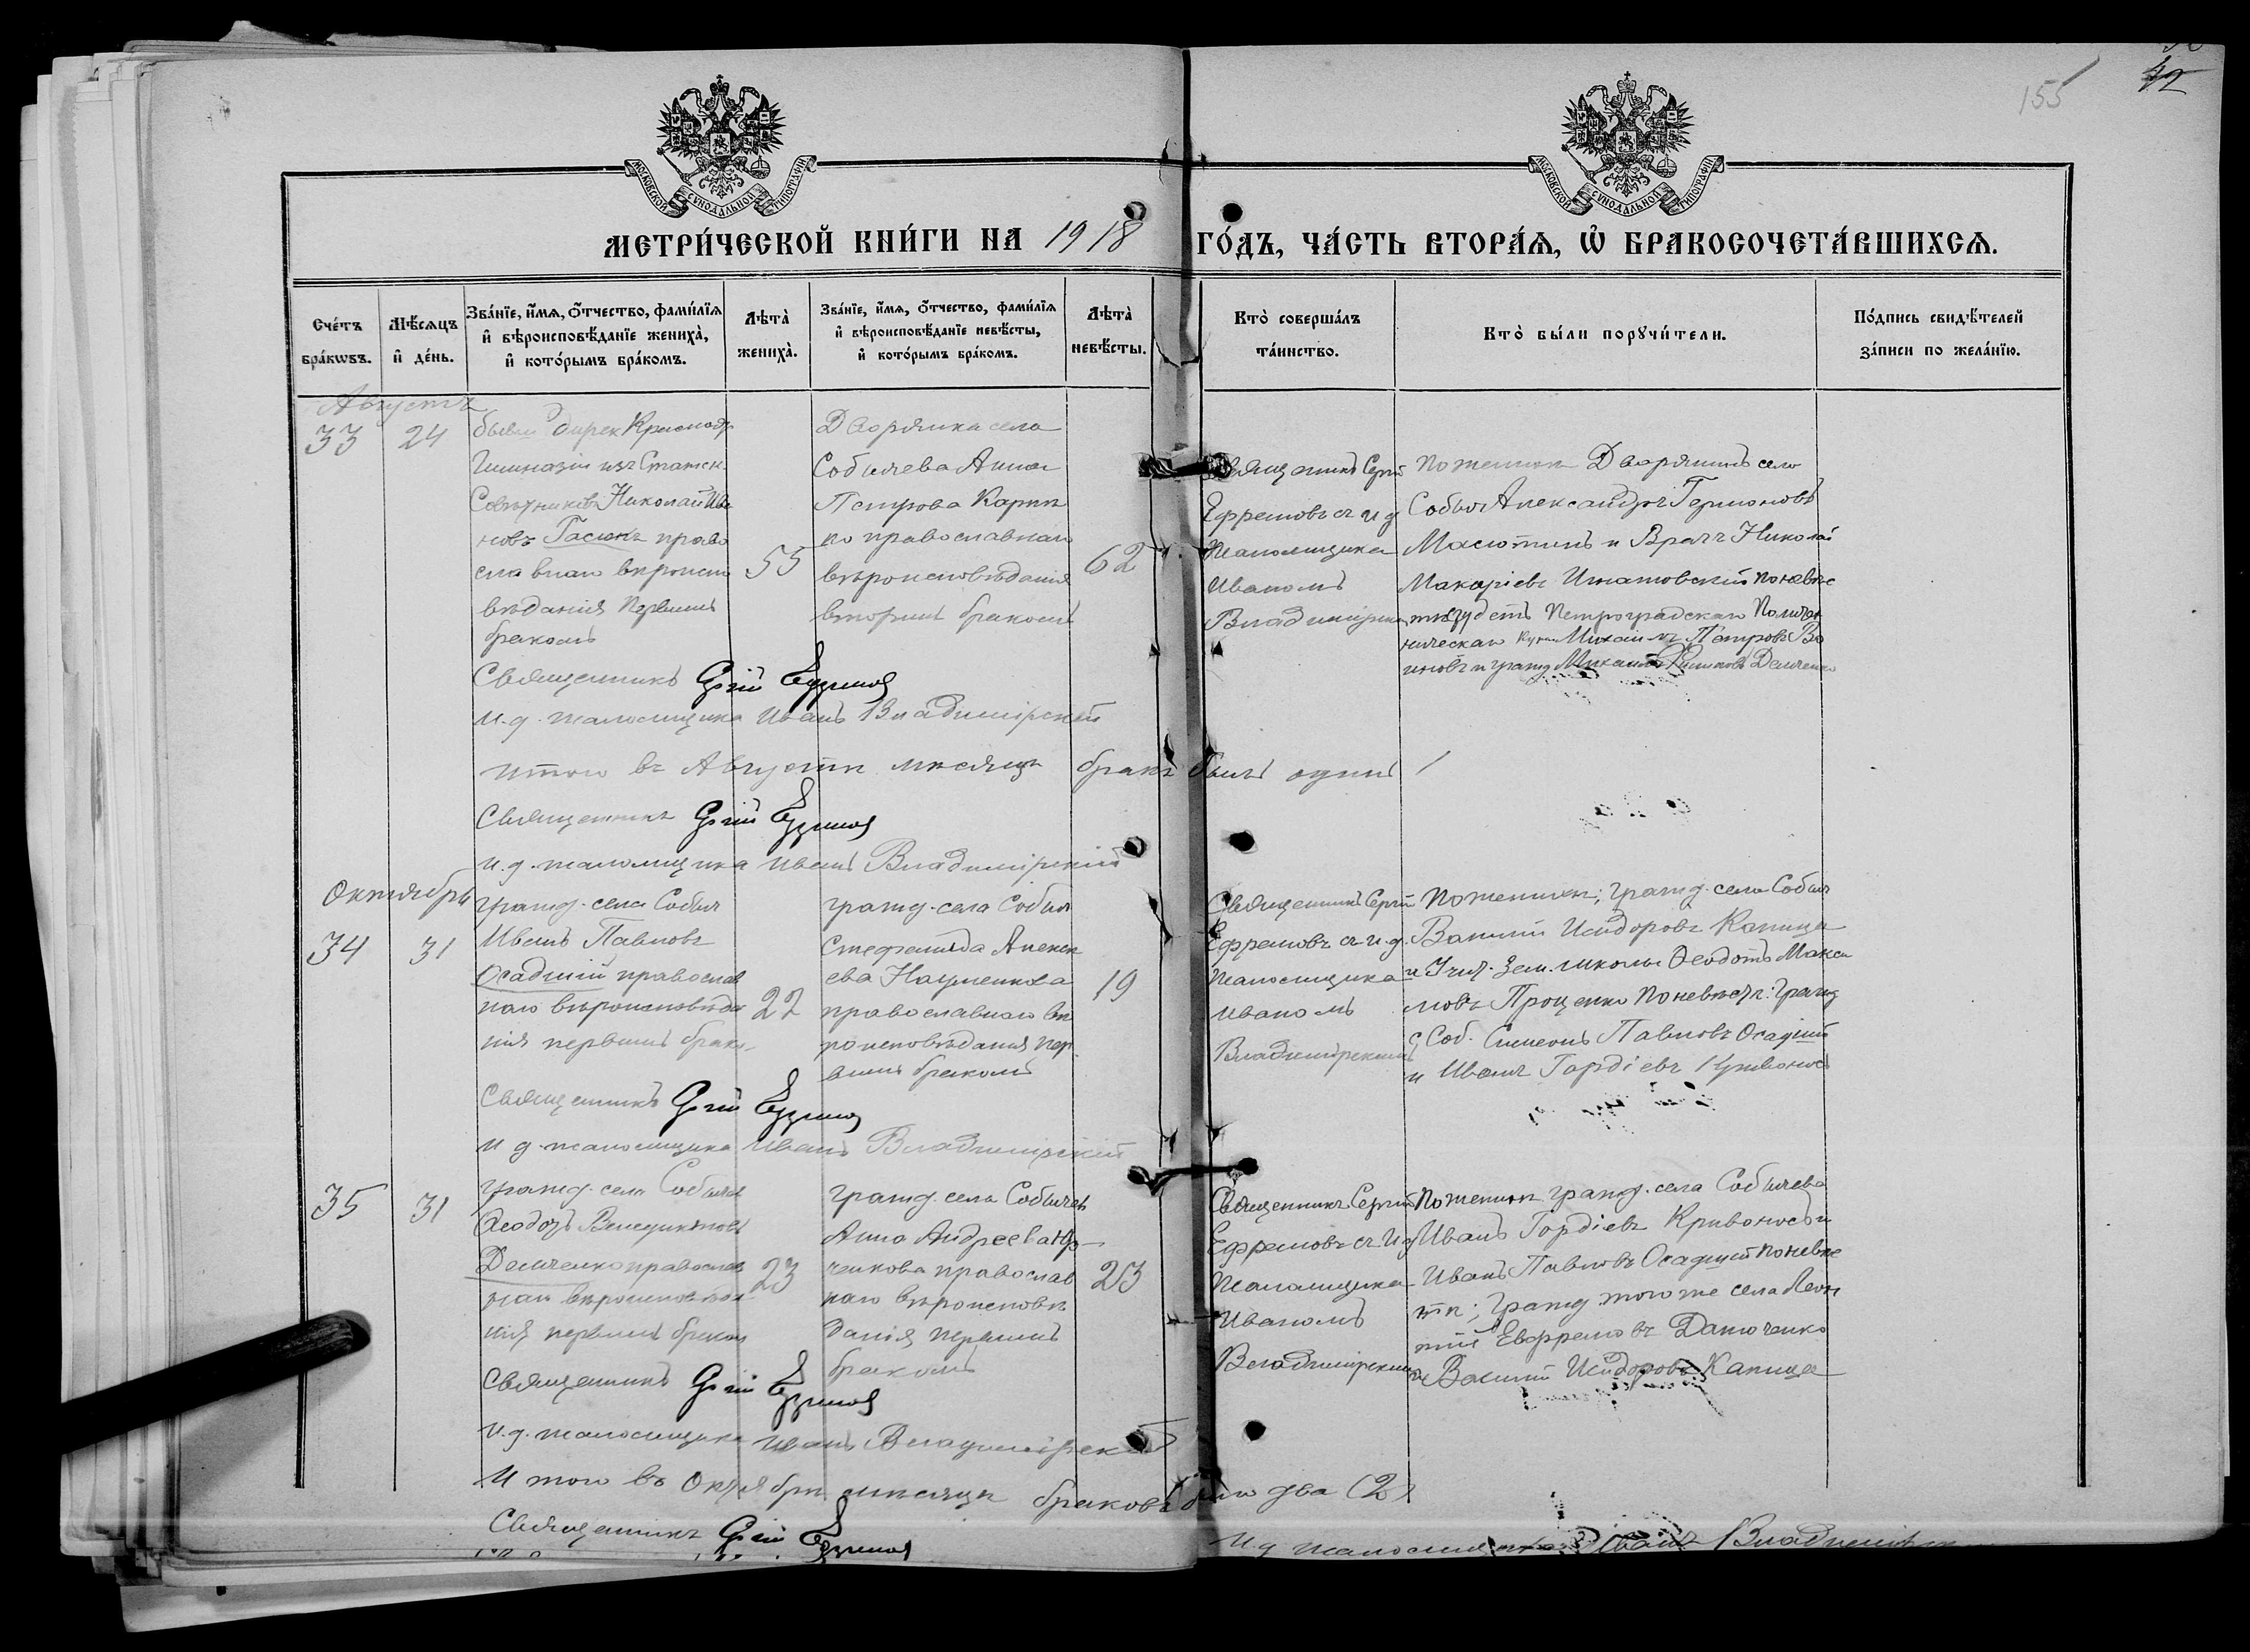 155
42
МОСКОВСКОЙ СѴНОДАЛЬНОЙ ТИПОГРАФІИ
МОСКОВСКОЙ СѴНОДАЛЬНОЙ ТИПОГРАФІИ
МЕТРИ́ЧЕСКОЙ КНИ́ГИ НА 1918 ГО́ДЪ, ЧА́СТЬ ВТОРА́Я, Ѽ БРАКОСОЧЕТА́ВШИХСЯ.
Сче́тъ
бра́кѡвъ.
Мѣ́сяцъ
и҆ де́нь.
Зва́нїе, и҆́мя, ѻ҆́тчество, фами́лїя
и҆ вѣроисповѣ́данїе жениха̀,
и҆ кото́рымъ бра́комъ.
Лѣта̀
жениха̀.
Зва́нїе, и҆́мя, ѻ҆́тчество, фами́лїя
и҆ вѣроисповѣ́данїе невѣ́сты,
и҆ кото́рымъ бра́комъ.
Лѣта̀
невѣ́сты.
Кто̀ соверша́лъ
та́инство.
Кто̀ бы́ли порꙋчи́тели.
По́дпись свидѣ́телей
за́писи по жела́нїю.
Августъ
33
24
Гимназіи изъ Статск
Совѣтниковъ Николай Ива
новъ Гасюкъ право
славнаго вѣроиспо
вѣданія первымъ
бракомъ
55
Дворянка села
Собычева Анна
Петрова
по православнаго
вѣроисповѣданія
вторымъ бракомъ
62
Священникъ Сергій
Ефремовъ съ и д
Псаломщика
Иваномъ
Владимірским
По женихѣ Дворянинъ села
Собыч Александръ Гермоновъ
Масютинъ и Врачъ Николай
Макаріевъ Игнатовскій по невѣс
тѣ студентъ Петроградскаго Политех
ническаго Михаилъ Петровъ Во
иновъ и гражд Михаилъ Демченко
Священникъ Сергій Ефремовъ
и. д. псаломщика Иванъ Владимірскій
Итого въ Августѣ мѣсяцѣ бракъ былъ одинъ 1
Священникъ Сергій Ефремовъ
и. д. псаломщика Иванъ Владимірскій
Октябрь
34
31
гражд. села Собыч
Иванъ Павловъ
Осадчій православ
наго вѣроисповѣда
нія первымъ брако
22
гражд. села Собыч
Стефанида Алекс
ева Науменкова
православнаго вѣ
роисповѣданія пер
вымъ бракомъ
19
Священникъ Сергій
Ефремовъ съ и. д.
Псаломщика
Иваномъ
Владимірскимъ
По женихѣ; гражд. села Собыч
Василій Исидоровъ Капица
и Учит. Зем. школы Ѳеодотъ Макси
мовъ Проценко По невѣстѣ: гражд
с Соб. Симеонъ Павловъ Осадчій
и Иванъ Гордіевъ Кривоносъ
Священникъ Сергій Ефремовъ
и д. псаломщика Иванъ Владимірскій
35
31
гражд. села Собычев
Ѳеодоръ Венедиктовъ
Демченко православ
наго вѣроисповѣда
нія первымъ браком
23
гражд. села Собычев
Анна Андреева Юр
ченкова православ
наго вѣроисповѣ
данія первымъ
бракомъ
23
Священникъ Сергій
Ефремовъ съ и д
Псаломщика
Иваномъ
Владимірским
По женихѣ гражд. села Собычева
Иванъ Гордіевъ Кривоносъ и
Иванъ Павловъ Осадчій по невѣс
тѣ; гражд того же села Леон
тій Евфремовъ Даточенко
и Василій Исидоровъ Капица
Священникъ Сергій Ефремовъ
и. д. псаломщика Иванъ Владимірскій
Итого въ Октябрѣ мѣсяцѣ браковъ было два (2)
Священникъ Сергій Ефремовъ
и. д псаломщика Иванъ Владимірск